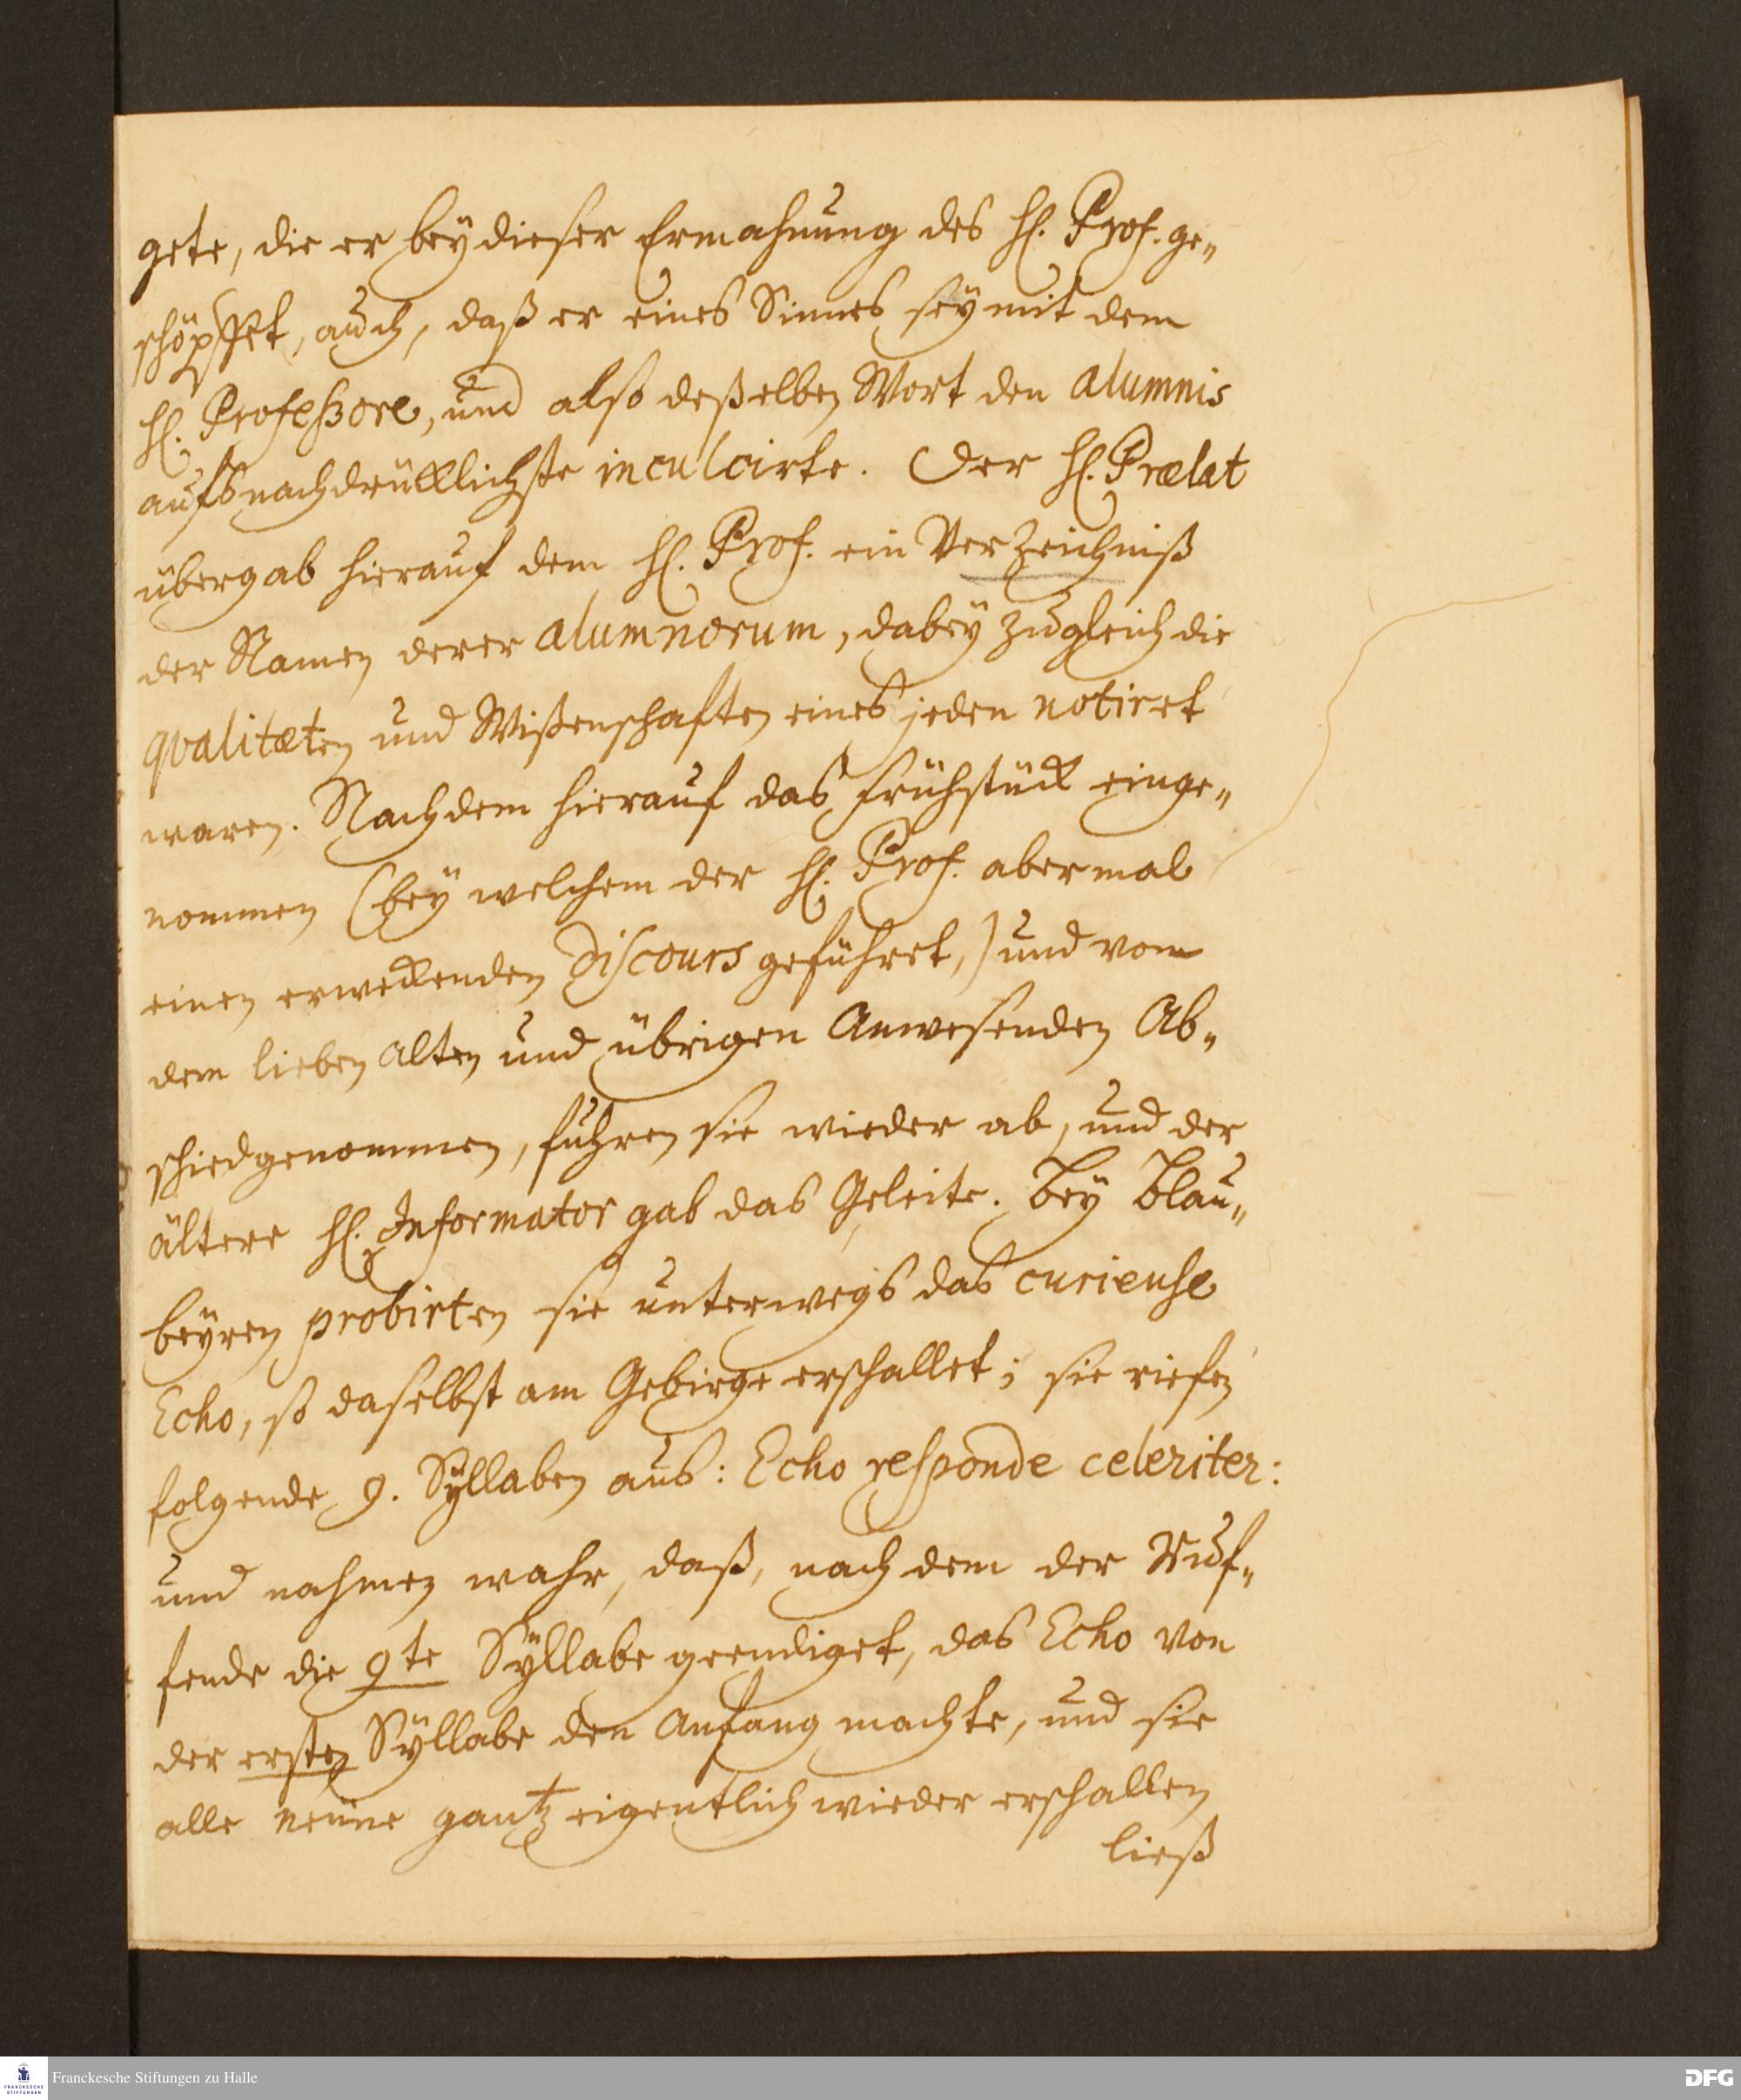 gete, die er bey dieser Ermahnung des H. Prof. ge-
schöpffet, auch, daß er eines Sinnes sey mit dem
H. Professore, und also deßelben Wort den alumnis
aufs nachdrücklichste inculcirte. Der H. Prælat
übergab hierauf dem H. Prof. ein Verzeichniß
der Namen derer alumnorum, dabey zugleich die
qvalitæten und Wißenschaften eines jeden notiret
waren. Nachdem hierauf das Frühstück einge-
nommen (bey welchem der H. Prof. abermal
einen erweckenden Discours geführet,) und von
dem lieben Alten und übrigen Anwesenden Ab-
schied genommen, fuhren sie wieder ab, und der
ältere H. Informator gab das Geleite. Bey Blau-
beyren probirten sie unterwegs das curieuse
Echo, so daselbst am Gebirge erschallet; sie riefen
folgende 9. Syllaben aus: Echo responde celeriter:
und nahmen wahr, daß, nach dem der Ruf-
fende die 9te Syllabe geendiget, das Echo von
der ersten Syllabe den Anfang machte, und sie
alle neune gantz eigentlich wieder erschallen
ließ
Franckesche Stiftungen zu Halle
FRANCKESCHE
STIFTUNGEN
DFG